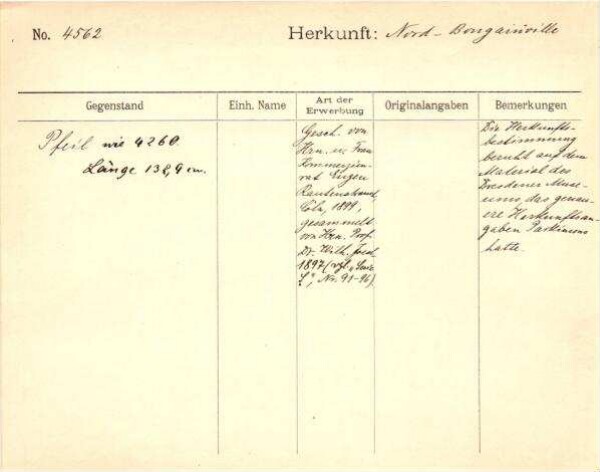 No. 4562
Herkunft: Nord-Bougainville
Gegenstand
Einh. Name
Art der
Erwerbung
Originalangaben
Bemerkungen
Pfeil wie 4260.
Länge 138,9 cm.
Gesch. von
Hrn. u. Frau
Kommerzien-
rat Eugen
Rautenstrauch,
Cöln, 1899,
gesammelt
von Hrn. Prof.
Dr. Wilh. Joest
1897 (vgl.
No. 91-96).
Die Herkunfts-
bestimmung
beruht auf dem
Material des
Dresdener Mus-
eums das genau-
ere Herkunftsan-
gaben Parkinsons
hatte.